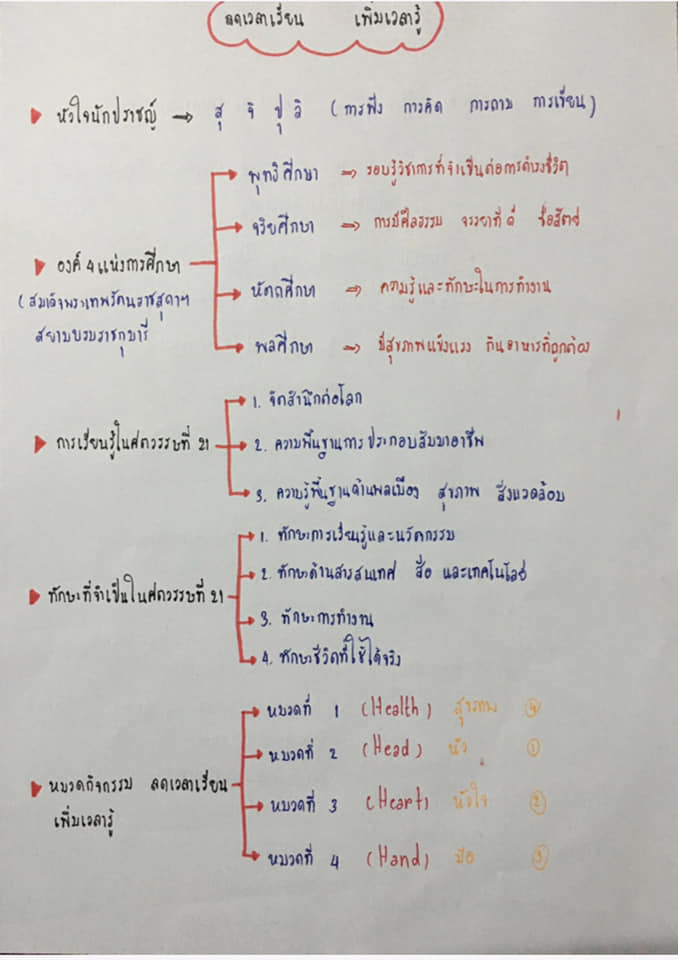 ลดเวลาเรียน เพิ่มเวลารู้
หัวใจนักปราชญ์ → สุ จิ ปุ ลิ (การฟัง การคิด การถาม การเขียน)
องค์ 4 แห่งการศึกษา
(สมเด็จพระเทพรัตนราชสุดาฯ
สยามบรมราชกุมารี
พุทธิศึกษา → รอบรู้วิชาการที่จำเป็นต่อการดำรงชีวิต
จริยศึกษา → การมีศีลธรรม จรรยาที่ดี ซื่อสัตย์
หัตถศึกษา → ความรู้และทักษะในการทำงาน
พลศึกษา → มีสุขภาพแข็งแรง กินอาหารที่ถูกต้อง
การเรียนรู้ในศตวรรษที่ 21
1. จิตสำนึกต่อโลก
2. ความพื้นฐานการประกอบสัมมาอาชีพ
3. ความรู้พื้นฐานด้านพลเมือง สุขภาพ สิ่งแวดล้อม
ทักษะที่จำเป็นในศตวรรษที่ 21
1. ทักษะการเรียนรู้และนวัตกรรม
2. ทักษะด้านสารสนเทศ สื่อ และเทคโนโลยี
3. ทักษะการทำงาน
4. ทักษะชีวิตที่ใช้ได้จริง
หมวดกิจกรรม ลดเวลาเรียน
เพิ่มเวลารู้
หมวดที่ 1 (Health) สุขภาพ ④
หมวดที่ 2 (Head) หัว ①
หมวดที่ 3 (Heart) หัวใจ ②
หมวดที่ 4 (Hand) มือ ③